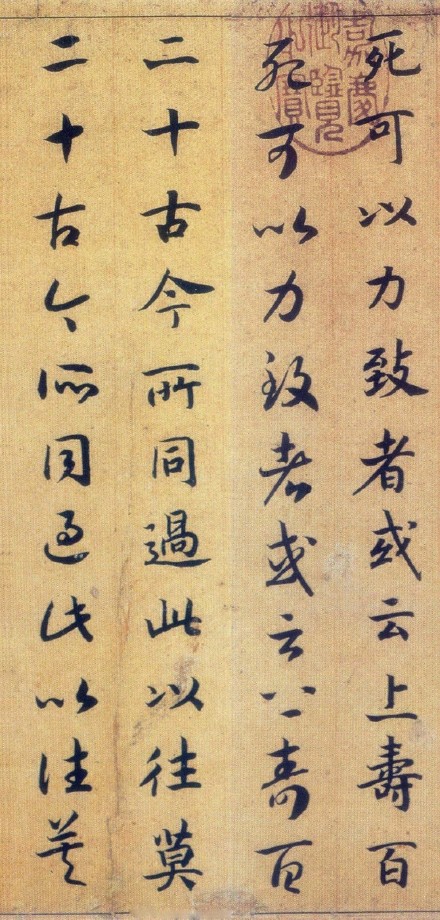 死可以力致者或云上壽百
死可以力致者或云上壽百
二十古今所同過此以往莫
二十古今所同過此以往莫
嘉慶
御覽
之寶